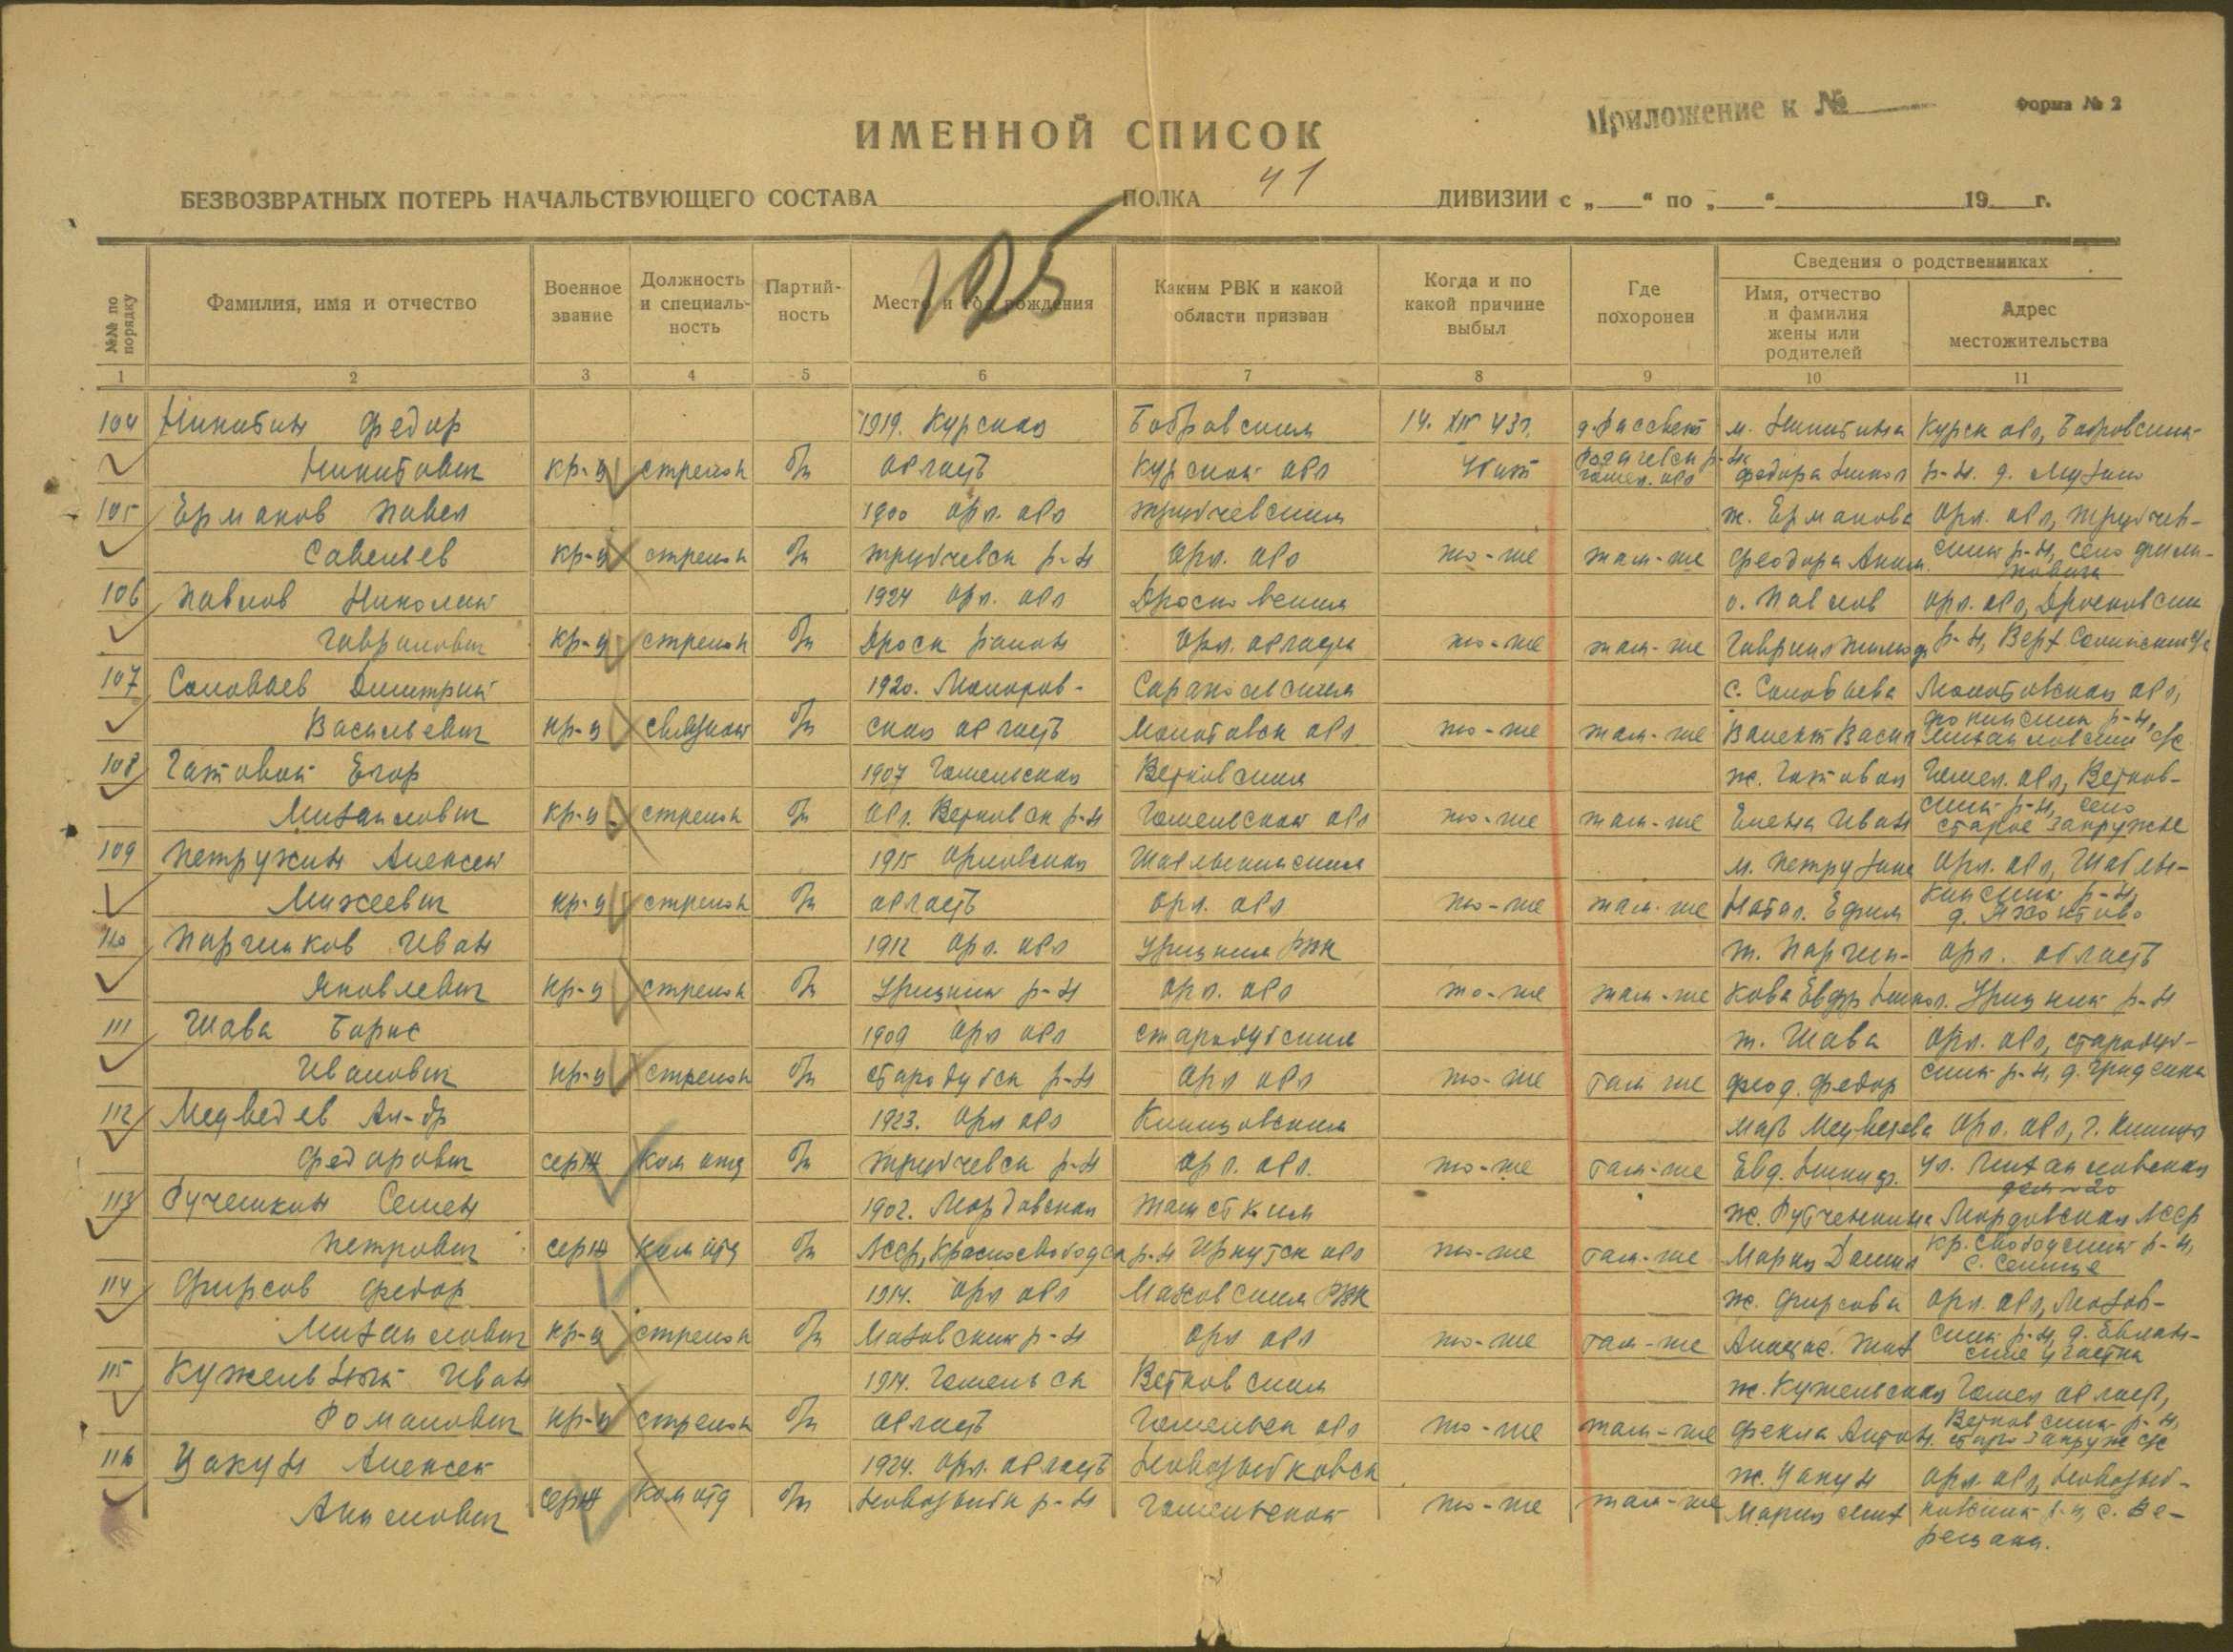 Приложение к №
Форма № 2
ИМЕННОЙ СПИСОК
БЕЗВОЗВРАТНЫХ ПОТЕРЬ НАЧАЛЬСТВУЮЩЕГО СОСТАВА ПОЛКА 41 ДИВИЗИИ с „ “ по „ “ 19 г.
125
№№ по порядку
Фамилия, имя и отчество
Военное звание
Должность и специальность
Партийность
Место и год рождения
Каким РВК и какой области призван
Когда и по какой причине выбыл
Где похоронен
Сведения о родственниках
Имя, отчество и фамилия жены или родителей
Адрес местожительства
1 2 3 4 5 6 7 8 9 10 11
104 Никитин Федор 1919. Курская Бобровским 14. XII 43 г. д. Рассвет м. Никитина Курск обл, Бобровский
Никитович кр-ц стрелок б/п область Курской обл Убит Рогачевск р-н Гомел. обл Федора Никол р-н. д.
105 Ермаков Павел 1900 Орл. обл Трубчевским ж. Ермакова Орл. обл, Трубчев-
Савельев кр-ц стрелок б/п Трубчевск р-н Орл. обл то-же там-же Феодора Аким. ский р-н, село
106 Павлов Николай 1924 Орл. обл Дросковским о. Павлов Орл. обл, Дросковский
Гаврилович кр-ц стрелок б/п Дроск район Орл. области то-же там-же Гаврил р-н, Верх
107 Соловьев Дмитрий 1920. Молотов- с. Соловьева Молотовская обл,
Васильевич кр-ц связной б/п ская область Молотовск обл то-же там-же Валент Васил Михайловский с/с
108 Гатовой Егор 1907 Гомельская Ветковским ж. Гатовая Гомел. обл, Ветков-
Михайлович кр-ц стрелок б/п обл. Ветковск р-н Гомельской обл то-же там-же Елена Иван ский р-н, село старое Закружье
109 Петрухин Алексей 1915 Орловская Шаблыкинским м. Петрухина Орл. обл, Шаблы-
Михеевич кр-ц стрелок б/п область Орл. обл то-же там-же Натал. Ефим кинский р-н,
110 Парчиков Иван 1912 Орл. обл Урицким РВК ж. Парчи- Орл. область
Яковлевич кр-ц стрелок б/п Урицкий р-н Орл. обл то-же там-же кова Евдр Никол. Урицкий р-н
111 Шава Борис 1909 Орл обл Стародубским ж. Шава Орл. обл, Стародуб-
Иванович кр-ц стрелок б/п Стародубск р-н Орл обл то-же там же Феод. Федор ский р-н, д.
112 Медведев Ал-др 1923. Орл обл Клинцовским мать Медведева Орл. обл, г. Клинцы
Федорович серж ком отд б/п Трубчевск р-н Орл. обл. то-же там-же Евд. Никиф. ул. Михайловская дом 20
113 Семен 1902. Мордовская ж. Мордовская АССР
Петрович серж ком отд б/п АССР, Краснослободск р-н Иркутск обл то-же там-же Мария Данил Кр. Слободский р-н,
114 Фирсов Федор 1914. Орл обл Моховским РВК ж. Фирсова Орл. обл, Мохов-
Михайлович кр-ц стрелок б/п Моховский р-н Орл обл то-же там-же ский р-н, д. участки
115 Кужельный Иван 1914. Гомельск Ветковским ж. Кужельная Гомел область,
Романович кр-ц стрелок б/п область Гомельск обл то-же там-же Фекла Антон. Ветковский р-н, Старо Закруж с/с
116 Цакун Алексей 1924. Орл. область Новозыбковск ж. Цакун Орл. обл, Новозыб-
серж ком отд б/п Новозыбк р-н Гомельской то-же там-же Мария ковский р-н, с. Ве-
рещаки.